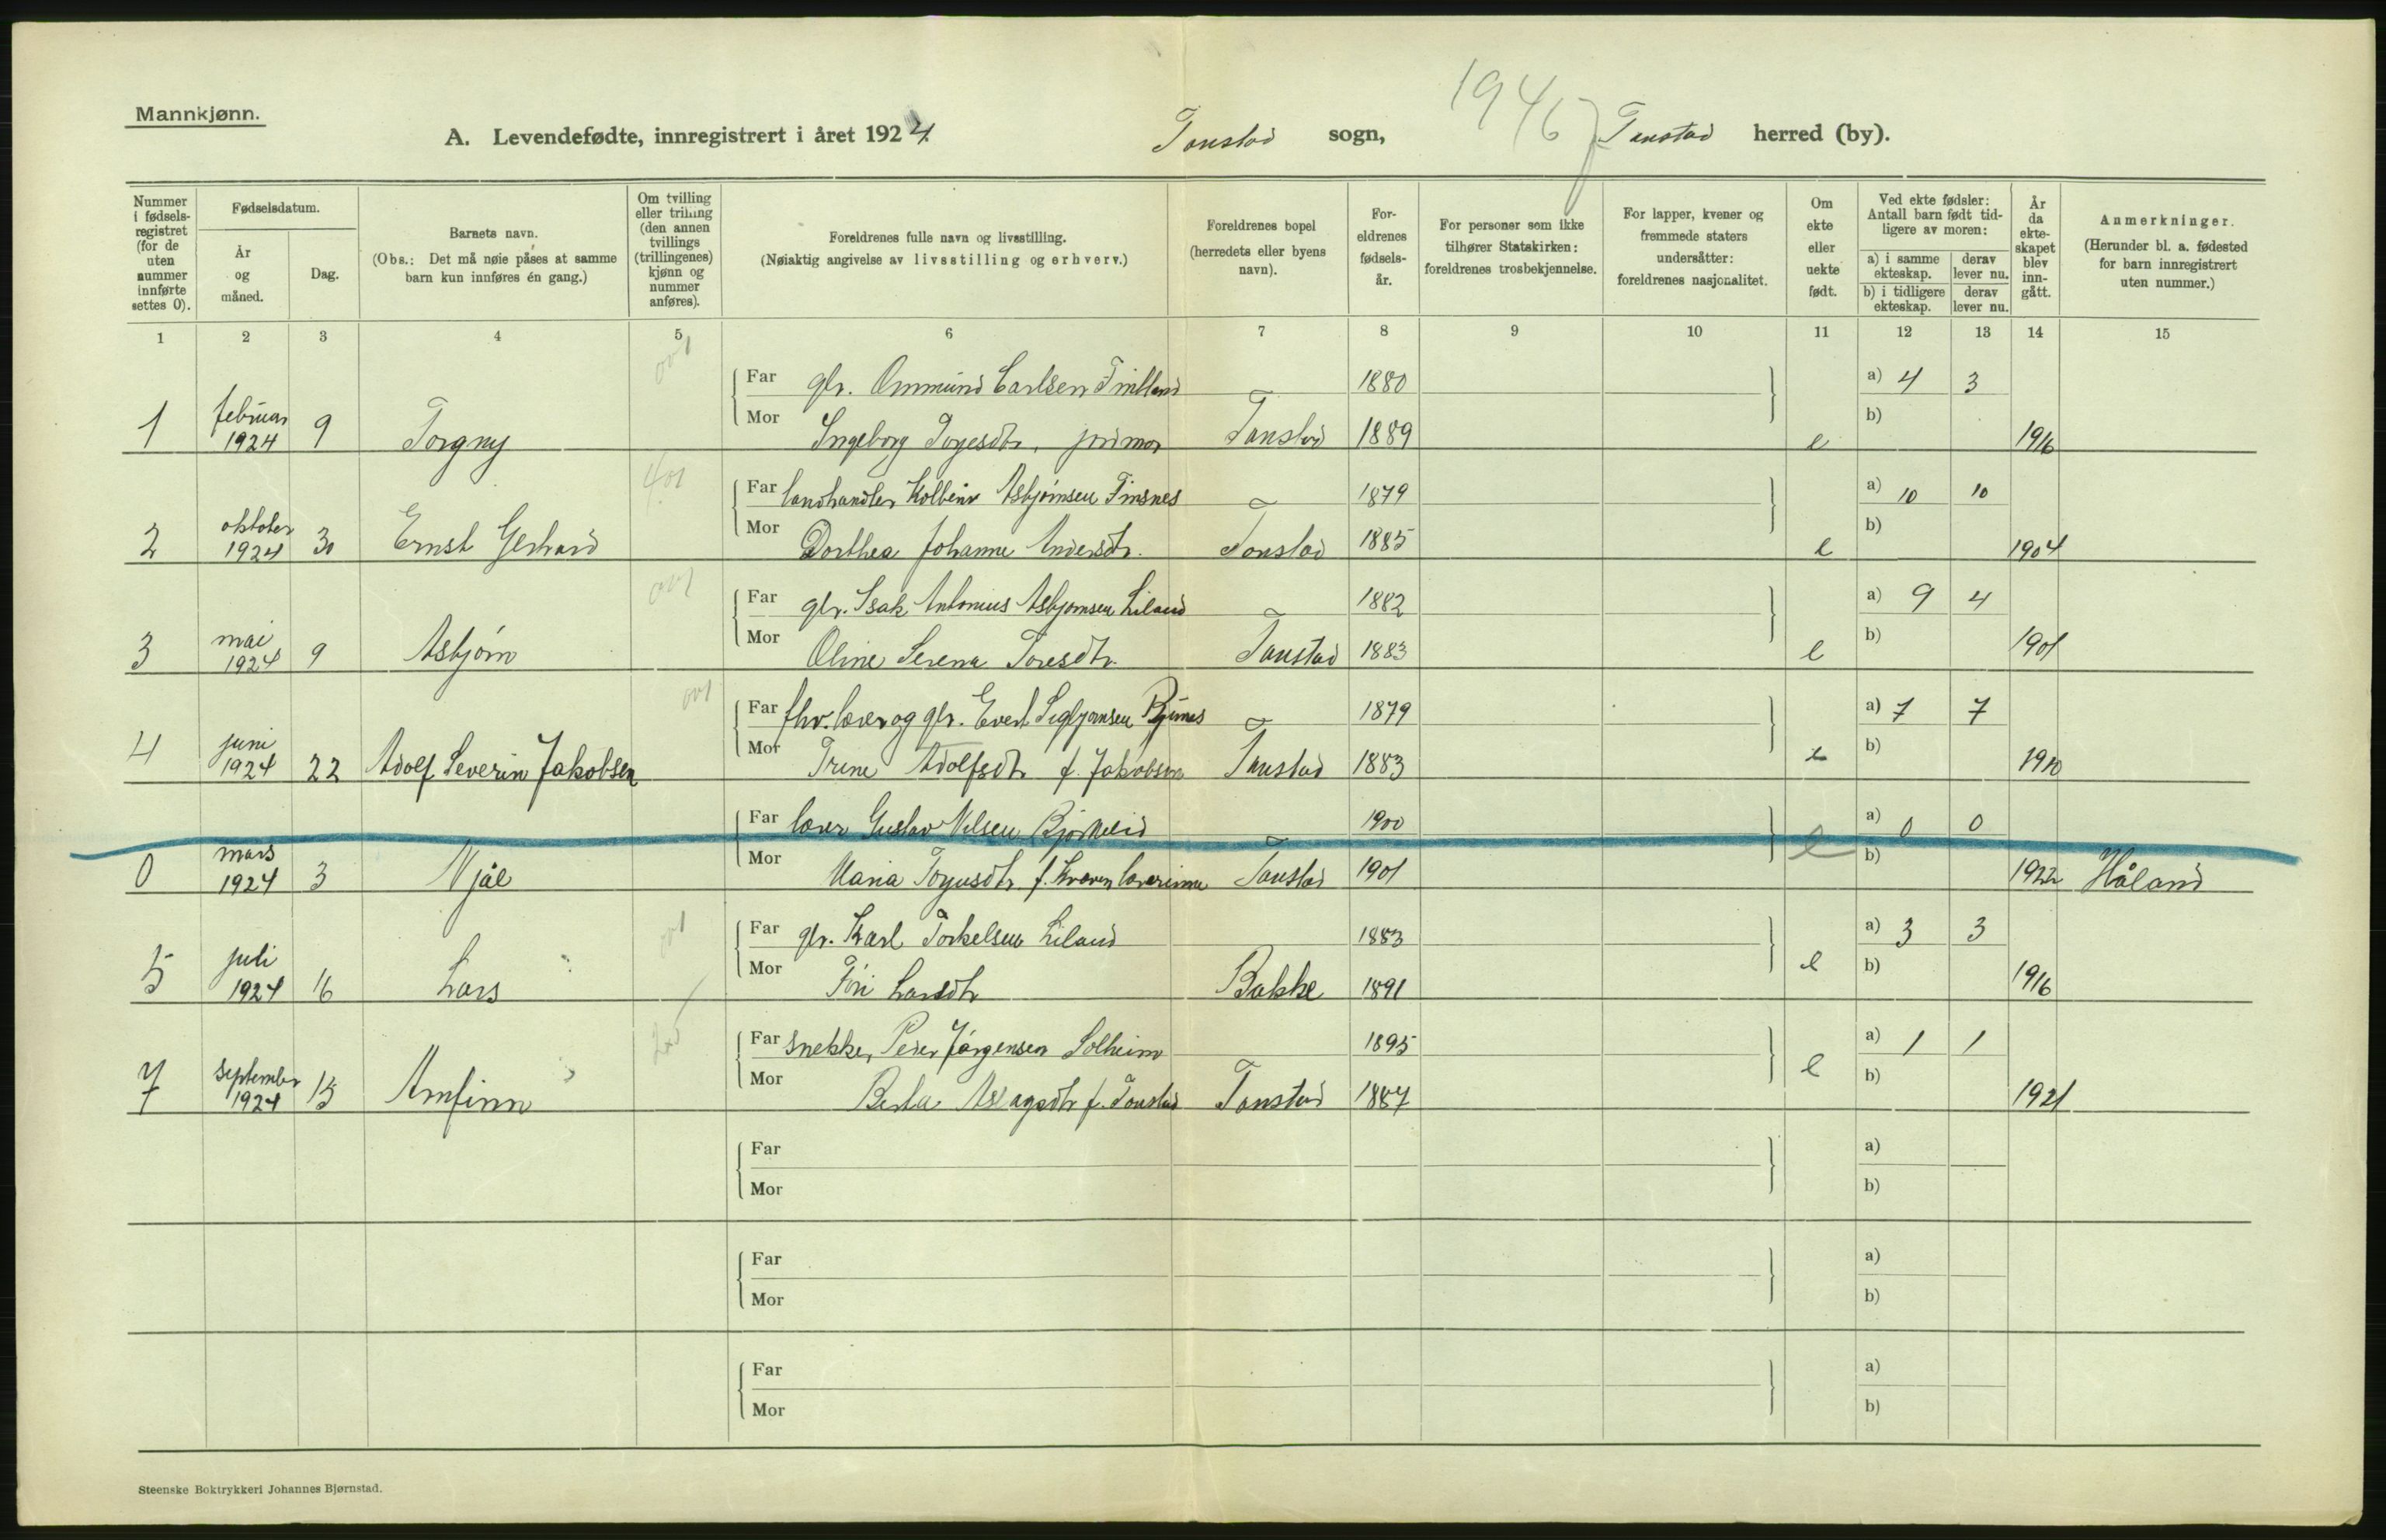 Mannkjønn.
A. Levendefødte, innregistrert i året 1924. Tonstad sogn, 1946 Tonstad herred (by).
Nummer i fødselsregistret (for de uten nummer innførte settes 0).
Fødselsdatum.
År og måned.
Dag.
Barnets navn.
(Obs.: Det må nøie påses at samme barn kun innføres én gang.)
Om tvilling eller trilling (den annen tvillings (trillingenes) kjønn og nummer anføres).
Foreldrenes fulle navn og livsstilling.
(Nøiaktig angivelse av livsstilling og erhverv.)
Foreldrenes bopel (herredets eller byens navn).
Foreldrenes fødselsår.
For personer som ikke tilhører Statskirken: foreldrenes trosbekjennelse.
For lapper, kvener og fremmede staters undersåtter: foreldrenes nasjonalitet.
Om ekte eller uekte født.
Ved ekte fødsler: Antall barn født tidligere av moren:
a) i samme ekteskap. derav lever nu.
b) i tidligere ekteskap. derav lever nu.
År da ekteskapet blev inngått.
Anmerkninger.
(Herunder bl. a. fødested for barn innregistrert uten nummer.)
1 2 3 4 5 6 7 8 9 10 11 12 13 14 15
Far gbr. Ommund Carlsen 1880 a) 4 3
1 februar 1924 9 Torgny Mor Ingeborg jormor Tonstad 1889 e b) 1916
Far landhandler Kolbein Asbjørnsen Finsnes 1879 a) 10 10
2 oktober 1924 30 Ernst Gerhard Mor Dorthea Johanne Andersdtr. Tonstad 1885 e b) 1904
Far gbr. Isak Antonius Asbjørnsen Liland 1882 a) 9 4
3 mai 1924 9 Asbjørn Mor Oline Serena Toresdtr. Tonstad 1883 e b) 1901
Far fhv. lærer og gbr. Evert Sigbjørnsen 1879 a) 7 7
4 juni 1924 22 Adolf Severin Jakobsen Mor Trine Adolfsdtr f. Jakobsen Tonstad 1883 e b) 1910
Far lærer Gustav Nilsen 1900 a) 0 0
0 mars 1924 3 Njål Mor Maria f. Kvæven lærerinne Tonstad 1901 e b) 1922 Håland
Far gbr. Karl Torkelsen Liland 1883 a) 3 3
5 juli 1924 16 Lars Mor Larsdtr Bakke 1891 e b) 1916
Far snekker Peder Jørgensen Solheim 1895 a) 1 1
7 september 1924 15 Arnfinn Mor Berta Aslagsdtr f. Tonstad Tonstad 1887 e b) 1921
Far a)
Mor b)
Far a)
Mor b)
Far a)
Mor b)
Steenske Boktrykkeri Johannes Bjørnstad.